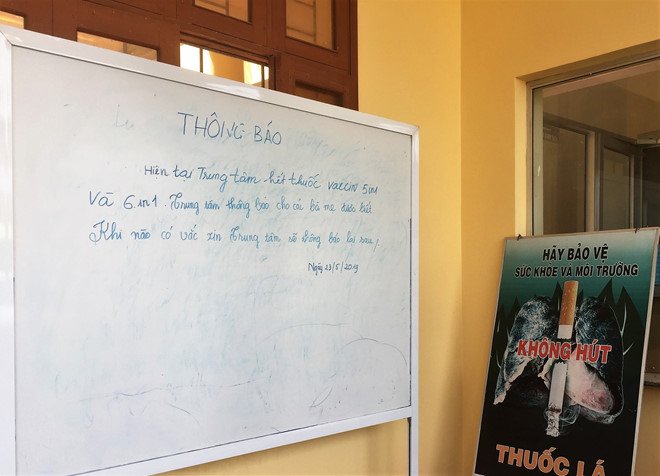 THÔNG BÁO
Hiện tại Trung tâm hết thuốc vaccin 5in1
Và 6.in1. Trung tâm thông báo cho các bà mẹ được biết
Khi nào có vắc xin Trung tâm sẽ thông báo lại sau!
Ngày 23/5/2019
HÃY BẢO VỆ
SỨC KHỎE VÀ MÔI TRƯỜNG
KHÔNG HÚT
THUỐC LÁ